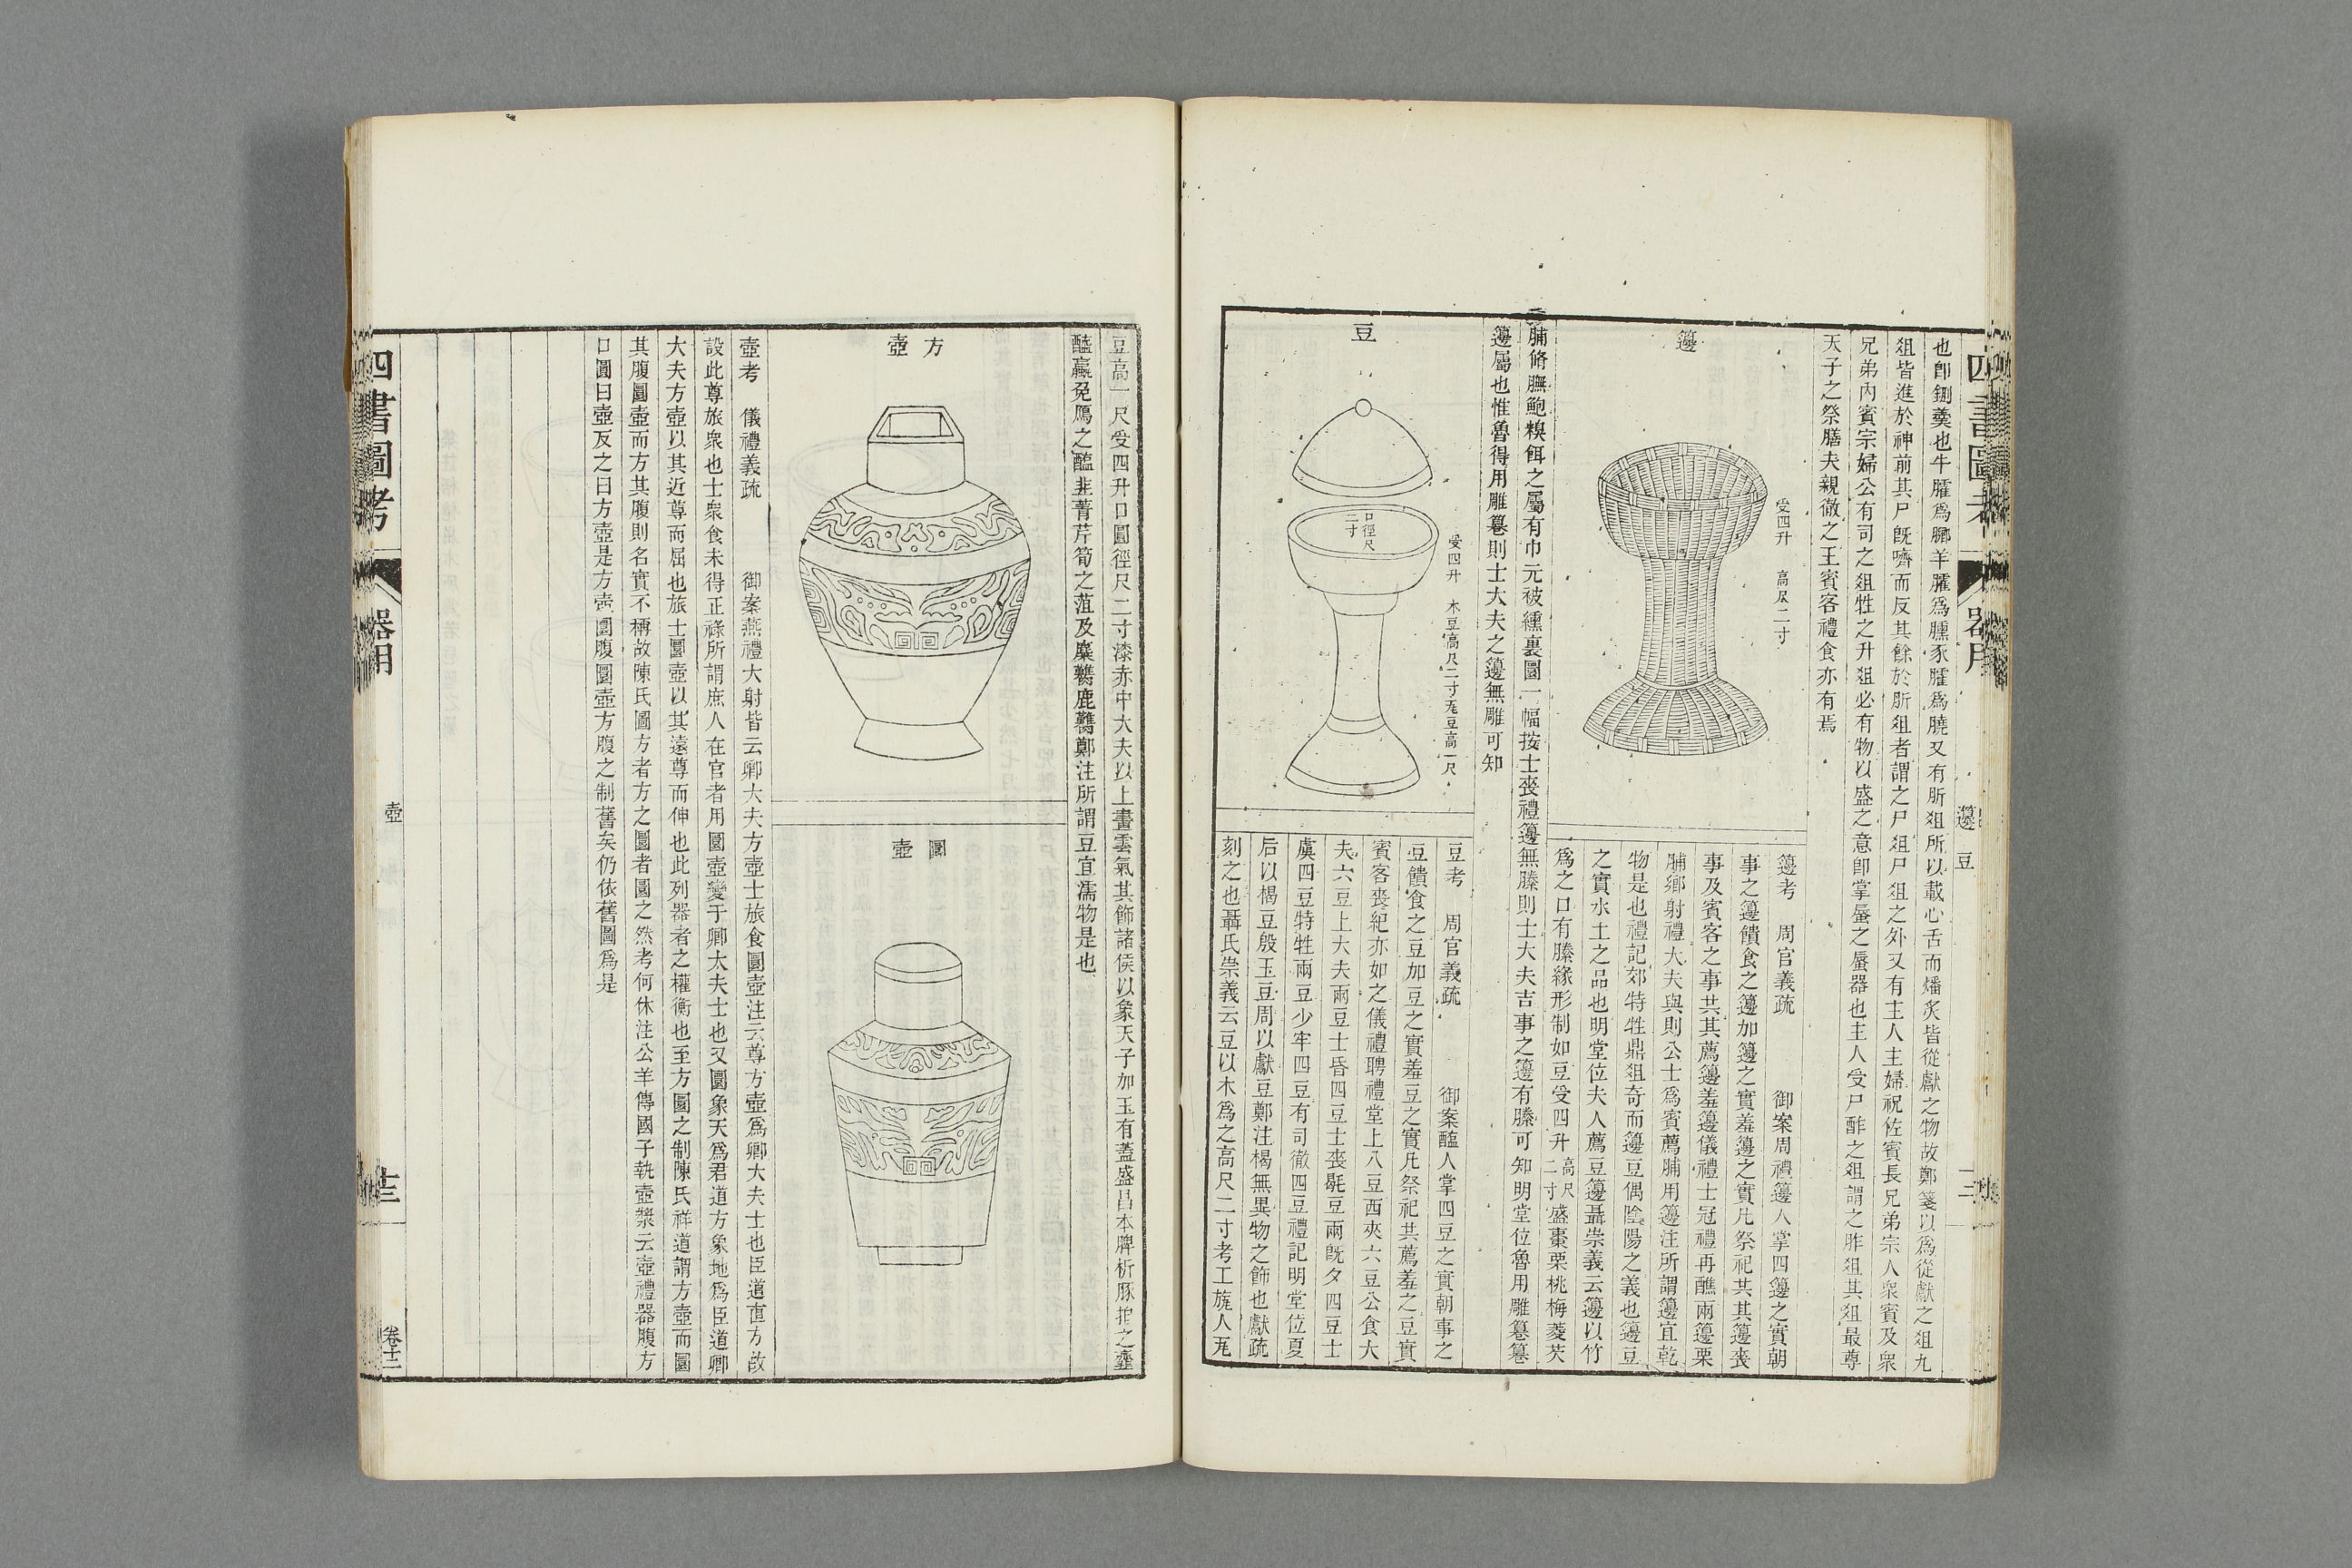 四書圖考
器用
籩 豆
也卽鉶羹也牛臛爲膷羊臛爲臐豕臛爲膮又有肵俎所以載心舌而燔炙皆從獻之物故鄭箋以爲從獻之俎九
俎皆進於神前其尸旣嚌而反其餘於肵俎者謂之尸俎尸俎之外又有主人主婦祝佐賓長兄弟宗人衆賓及衆
兄弟內賓宗婦公有司之俎牲之升俎必有物以盛之意卽掌蜃之蜃器也主人受尸酢之俎謂之胙俎其俎最尊
天子之祭膳夫親徹之王賓客禮食亦有焉
籩
受四升 高尺二寸
籩考 周官義疏 御案周禮籩人掌四籩之實朝
事之籩饋食之籩加籩之實羞籩之實凡祭祀共其籩喪
事及賓客之事共其薦籩羞籩儀禮士冠禮再醮兩籩栗
脯鄉射禮大夫與則公士爲賓薦脯用籩注所謂籩宜乾
物是也禮記郊特牲鼎俎奇而籩豆偶陰陽之義也籩豆
之實水土之品也明堂位夫人薦豆籩聶崇義云籩以竹
爲之口有縢緣形制如豆受四升高尺二寸盛棗栗桃梅菱芡
脯脩膴鮑糗餌之屬有巾元被纁裏圖一幅按士喪禮籩無縢則士大夫吉事之籩有縢可知明堂位魯用雕篹篹
籩屬也惟魯得用雕篹則士大夫之籩無雕可知
豆
受四升 木豆高尺二寸瓦豆高一尺
口徑尺二寸
豆考 周官義疏 御案醢人掌四豆之實朝事之
豆饋食之豆加豆之實羞豆之實凡祭祀共薦羞之豆實
賓客喪紀亦如之儀禮聘禮堂上八豆西夾六豆公食大
夫六豆上大夫兩豆士昏四豆士喪毼豆兩旣夕四豆士
虞四豆特牲兩豆少牢四豆有司徹四豆禮記明堂位夏
后以楬豆殷玉豆周以獻豆鄭注楬無異物之飾也獻疏
刻之也聶氏崇義云豆以木爲之高尺二寸考工旊人瓦
豆高一尺受四升口圓徑尺二寸漆赤中大夫以上畫雲氣其飾諸侯以象天子加玉有蓋盛昌本脾析豚拍之齏
醢蠃兔鴈之醢韭菁芹筍之菹及麋臡鹿臡鄭注所謂豆宜濡物是也
方壺
圜壺
壺考 儀禮義疏 御案燕禮大射皆云卿大夫方壺士旅食圜壺注云尊方壺爲卿大夫士也臣道直方故
設此尊旅衆也士衆食未得正祿所謂庶人在官者用圜壺變于卿大夫士也又圜象天爲君道方象地爲臣道卿
大夫方壺以其近尊而屈也旅士圜壺以其遠尊而伸也此列器者之權衡也至方圜之制陳氏祥道謂方壺而圜
其腹圜壺而方其腹則名實不稱故陳氏圖方者方之圜者圜之然考何休注公羊傳國子執壺漿云壺禮器腹方
口圓曰壺反之曰方壺是方壺圜腹圜壺方腹之制舊矣仍依舊圖爲是
四書圖考
器用
壺
卷十二